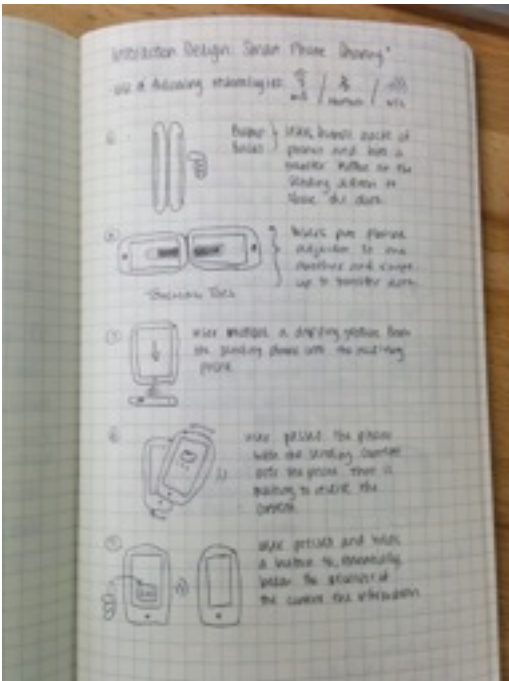 Interaction Design: Smart Phone Sharing
use of following technologies: / human /
Users bump backs of
phones and hold a
transfer button on the
sending screen to
share the data.
Users put phones
adjacent to one
another and swipe
up to transfer data.
Touching Tops
User a dragging gesture from
the sending phone onto the receiving
phone
User passes the phone
with the sending content
over the phone that is
waiting to receive the
content.
User presses and holds
a button to essentially
the receiver of
the content the information